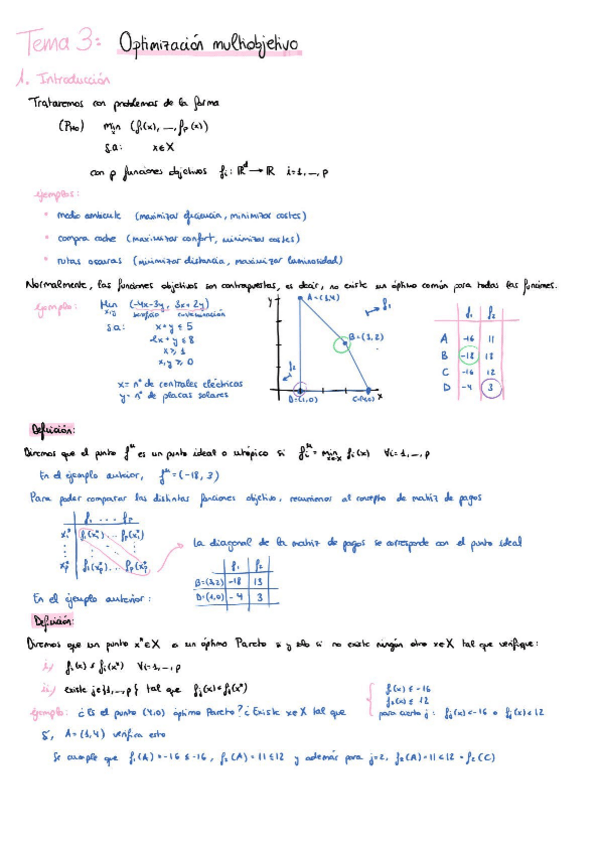 Tema 3: Optimización multiobjetivo
1. Introducción
Trataremos con problemas de la forma
(PMO) min x (f1(x), ..., fp(x))
s.a: x∈X
con p funciones objetivos fi: ℝᵈ → ℝ i=1, ..., p
ejemplos:
• medio ambiente (maximizar eficiencia, minimizar costes)
• compra coche (maximizar confort, minimizar costes)
• rutas oscuras (minimizar distancia, maximizar luminosidad)
Normalmente, las funciones objetivos son contrapuestas, es decir, no existe un óptimo común para todas las funciones.
ejemplo: Min (-4x-3y, 3x+2y)
beneficio contaminación
s.a: x+y ≤ 5
2x+y ≤ 8
x ≥ 1
x,y ≥ 0
x = nº de centrales eléctricas
y = nº de placas solares
y
A=(1,4)
f1
B=(3,2)
f2
D=(1,0)
C=(4,0)
x
f1 f2
A -16 11
B -18 13
C -16 12
D -4 3
Definición:
Diremos que el punto fᵘ es un punto ideal o utópico si fiᵘ = min x∈X fi(x) ∀i=1, ..., p
En el ejemplo anterior, fᵘ=(-18, 3)
Para poder comparar las distintas funciones objetivo, recurrimos al concepto de matriz de pagos
f1 ... fp
x1* f1(x1*) ... fp(x1*)
xp* f1(xp*) ... fp(xp*)
La diagonal de la matriz de pagos se corresponde con el punto ideal
f1 f2
B=(3,2) -18 13
D=(1,0) -4 3
En el ejemplo anterior:
Definición:
Diremos que un punto x*∈X es un óptimo Pareto si y sólo si no existe ningún otro x∈X tal que verifique:
i) fi(x) ≤ fi(x*) ∀i=1, ..., p
ii) existe j∈{1, ..., p} tal que fj(x)<fj(x*)
ejemplo: ¿Es el punto (4,0) óptimo Pareto? ¿Existe x∈X tal que
f1(x) ≤ -16
f2(x) ≤ 12
para cierto j: f1(x)<-16 o f2(x)<12
Sí, A=(1,4) verifica esto
Se cumple que f1(A)=-16 ≤ -16, f2(A)=11 ≤ 12 y además para j=2, f2(A)=11<12=f2(C)